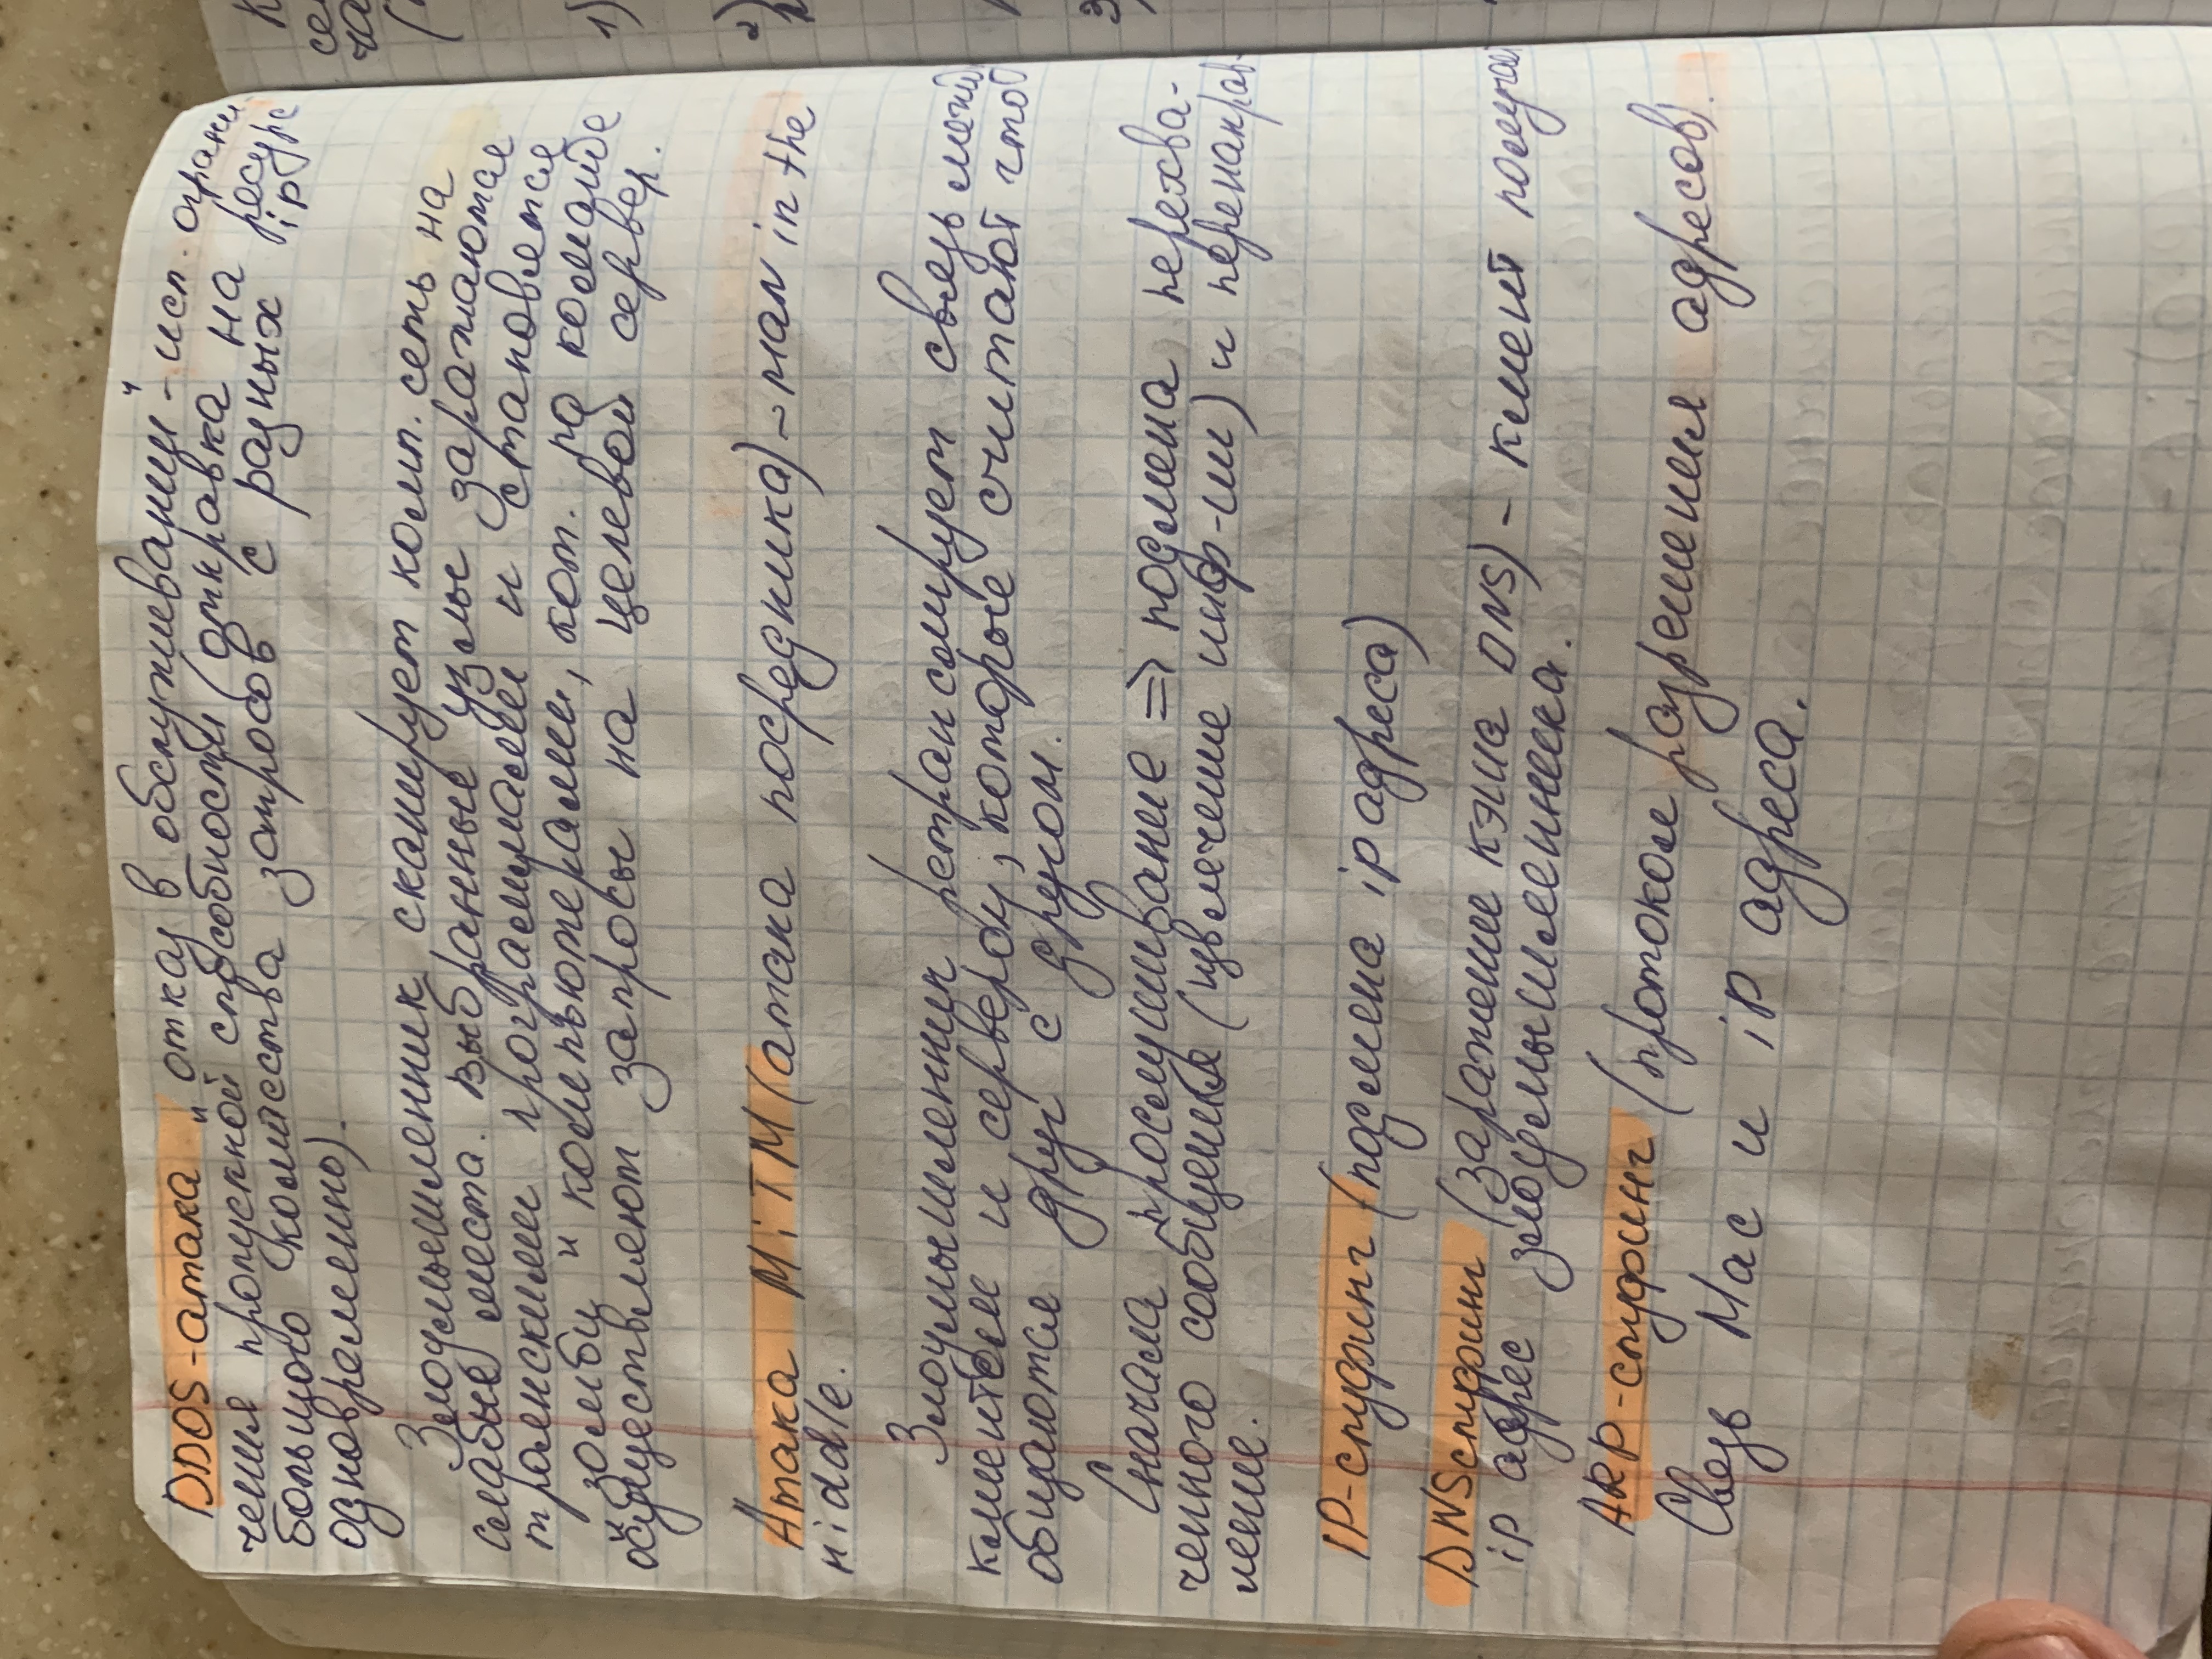 DDOS-атака „отказ в обслуживании“ - исп. ограни-
чения пропускной способности (отправка на ресурс
большого количества запросов с разных ip
одновременно).
Злоумышленник сканирует комп. сеть на
слабые места. Выбранные узлы заражаются
троянскими программами и становятся
„зомби“ компьютерами, кот. по команде
осуществляют запросы на целевой сервер.
Атака MiTM (атака посредника) - man in the
middle.
Злоумышленник ретранслирует связь межд
клиентом и сервером, которые считают что
общаются друг с другом.
Сначала прослушивание => подмена перехва-
ченного сообщения (извлечение инф-ии) и перенаправ-
ление.
IP-спуфинг (подмена ip адреса)
DNS спуфинг (заражение кэша DNS) - клиент получает
ip адрес злоумышленника.
ARP-спуфинг (протокол разрешения адресов).
Связь Mac и iP адреса.
1)
2)
3